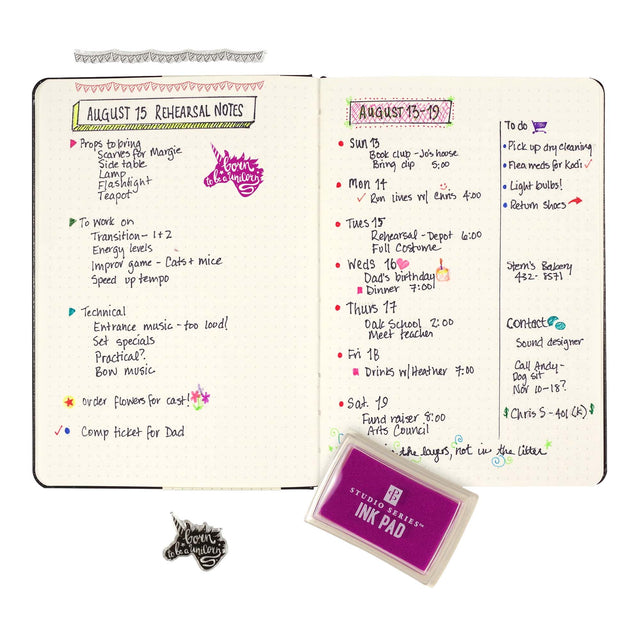 AUGUST 15 REHEARSAL NOTES
Props to bring
Scarves for Margie
Side table
Lamp
Flashlight
Teapot
born
to be a unicorn
To work on
Transition - 1+2
Energy levels
Improv game - Cats + mice
Speed up tempo
Technical
Entrance music - too loud!
Set specials
Practical?
Bow music
order flowers for cast!
Comp ticket for Dad
AUGUST 13-19
Sun 13
Book club - Jo's house
Bring dip 5:00
Mon 14
Run lines w/ Chris 4:00
Tues 15
Rehearsal - Depot 6:00
Full Costume
Weds 16
Dad's birthday
Dinner 7:00
Thurs 17
Oak School 2:00
Meet teacher
Fri 18
Drinks w/ Heather 7:00
Sat. 19
Fund raiser 8:00
Arts Council
in the layers, not in the litter
To do
Pick up dry cleaning
Flea meds for Kodi
Light bulbs!
Return shoes
Stern's Bakery
432-8571
Contact
Sound designer
Call Andy -
Dog sit
Nov 10-18?
$ Chris S - 401(k) $
born
to be a unicorn
STUDIO SERIES™
INK PAD